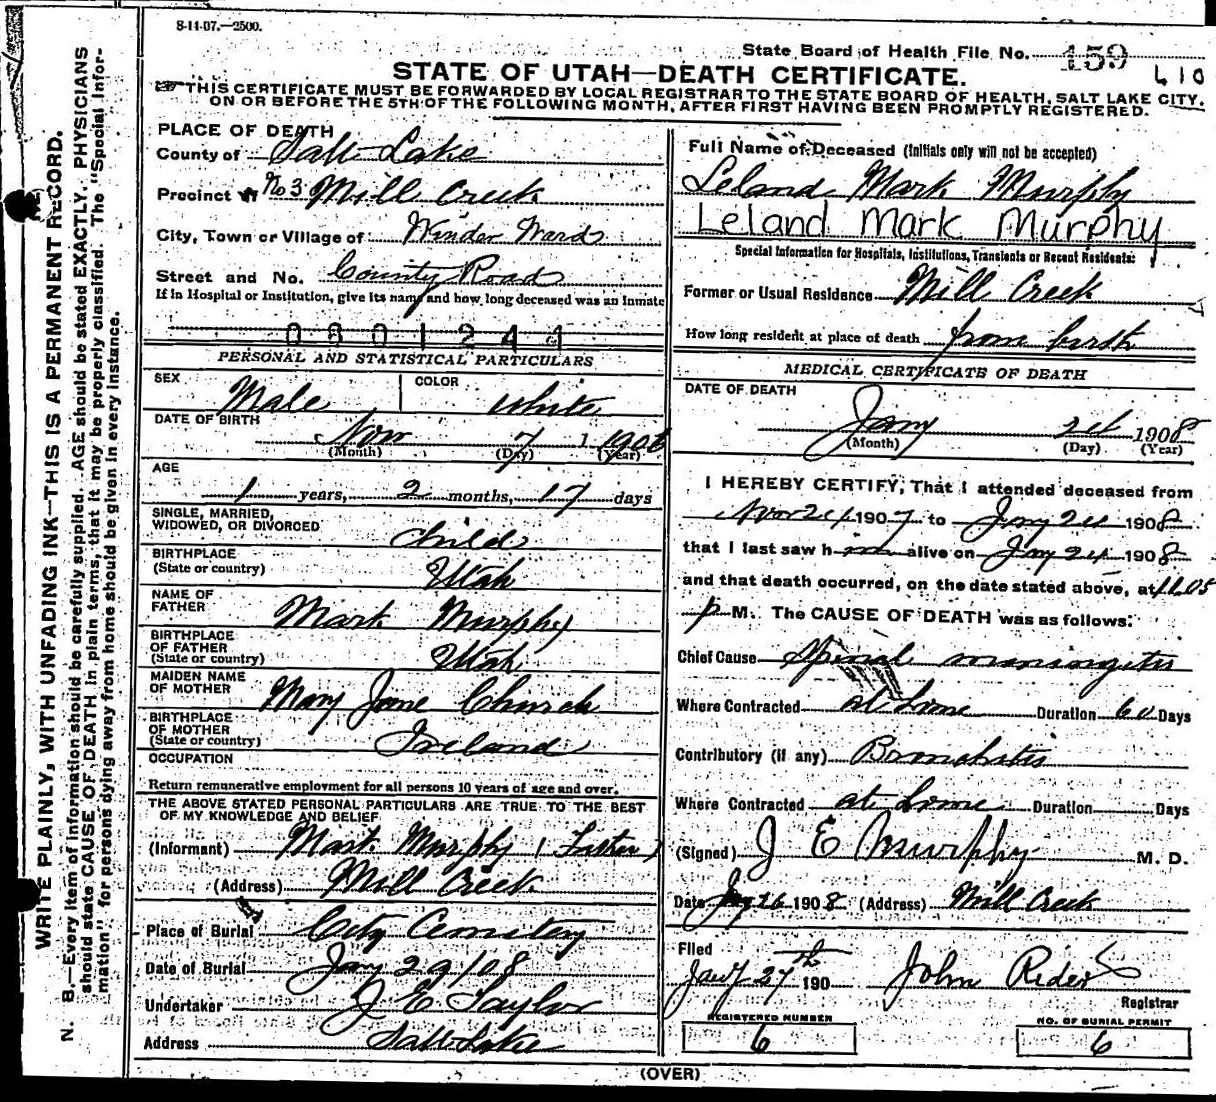 8-11-07.—2500.
State Board of Health File No. 159
STATE OF UTAH—DEATH CERTIFICATE.
L 10
THIS CERTIFICATE MUST BE FORWARDED BY LOCAL REGISTRAR TO THE STATE BOARD OF HEALTH, SALT LAKE CITY.
ON OR BEFORE THE 5TH OF THE FOLLOWING MONTH, AFTER FIRST HAVING BEEN PROMPTLY REGISTERED.
WRITE PLAINLY, WITH UNFADING INK—THIS IS A PERMANENT RECORD.
N. B.—Every item of information should be carefully supplied. AGE should be stated EXACTLY. PHYSICIANS
should state CAUSE OF DEATH in plain terms, that it may be properly classified. The "Special Infor-
mation" for persons dying away from home should be given in every instance.
PLACE OF DEATH
County of Salt Lake
Precinct No 3 Mill Creek
City, Town or Village of Winder Ward
Street and No. County Road
If in Hospital or Institution, give its name and how long deceased was an inmate
0801244
PERSONAL AND STATISTICAL PARTICULARS
SEX Male COLOR White
DATE OF BIRTH
Nov 7 1 1906
(Month) (Day) (Year)
AGE
1 years, 2 months, 17 days
SINGLE, MARRIED,
WIDOWED, OR DIVORCED child
BIRTHPLACE
(State or country) Utah
NAME OF
FATHER Mark Murphy
BIRTHPLACE
OF FATHER
(State or country) Utah
MAIDEN NAME
OF MOTHER Mary Jane Church
BIRTHPLACE
OF MOTHER
(State or country) Ireland
OCCUPATION
Return remunerative employment for all persons 10 years of age and over.
THE ABOVE STATED PERSONAL PARTICULARS ARE TRUE TO THE BEST
OF MY KNOWLEDGE AND BELIEF
(Informant) Mark Murphy (Father)
(Address) Mill Creek
Place of Burial City Cemetery
Date of Burial Jany 29/08
Undertaker J E Taylor
Address Salt Lake
Full Name of Deceased (Initials only will not be accepted)
Leland Mark Murphy
Leland Mark Murphy
Special Information for Hospitals, Institutions, Transients or Recent Residents:
Former or Usual Residence Mill Creek
How long resident at place of death from birth
MEDICAL CERTIFICATE OF DEATH
DATE OF DEATH
Jany 24 1908
(Month) (Day) (Year)
I HEREBY CERTIFY, That I attended deceased from
Nov 24 1907 to Jany 24 1908
that I last saw h im alive on Jany 24 1908
and that death occurred, on the date stated above, at 11.05
p M. The CAUSE OF DEATH was as follows:
Chief Cause Spinal meningitis
Where Contracted at home Duration 60 Days
Contributory (if any) Bronchitis
Where Contracted at home Duration Days
(Signed) J E Murphy M. D.
Date Jany 26 1908 (Address) Mill Creek
Filed
Jany 27th 190 John Rider
Registrar
REGISTERED NUMBER
6
NO. OF BURIAL PERMIT
6
(OVER)